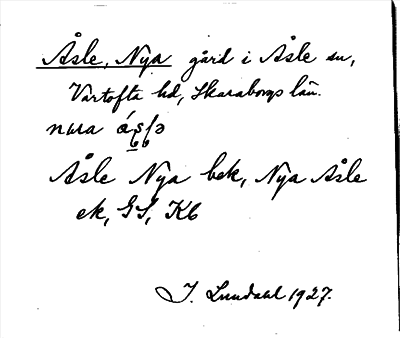 Åsle, Nya gård i Åsle sn,
Vartofta hd, Skaraborgs län.
nɯa
Åsle Nya bek, Nya Åsle
ek, GS, Kb
J. Lundahl 1927.